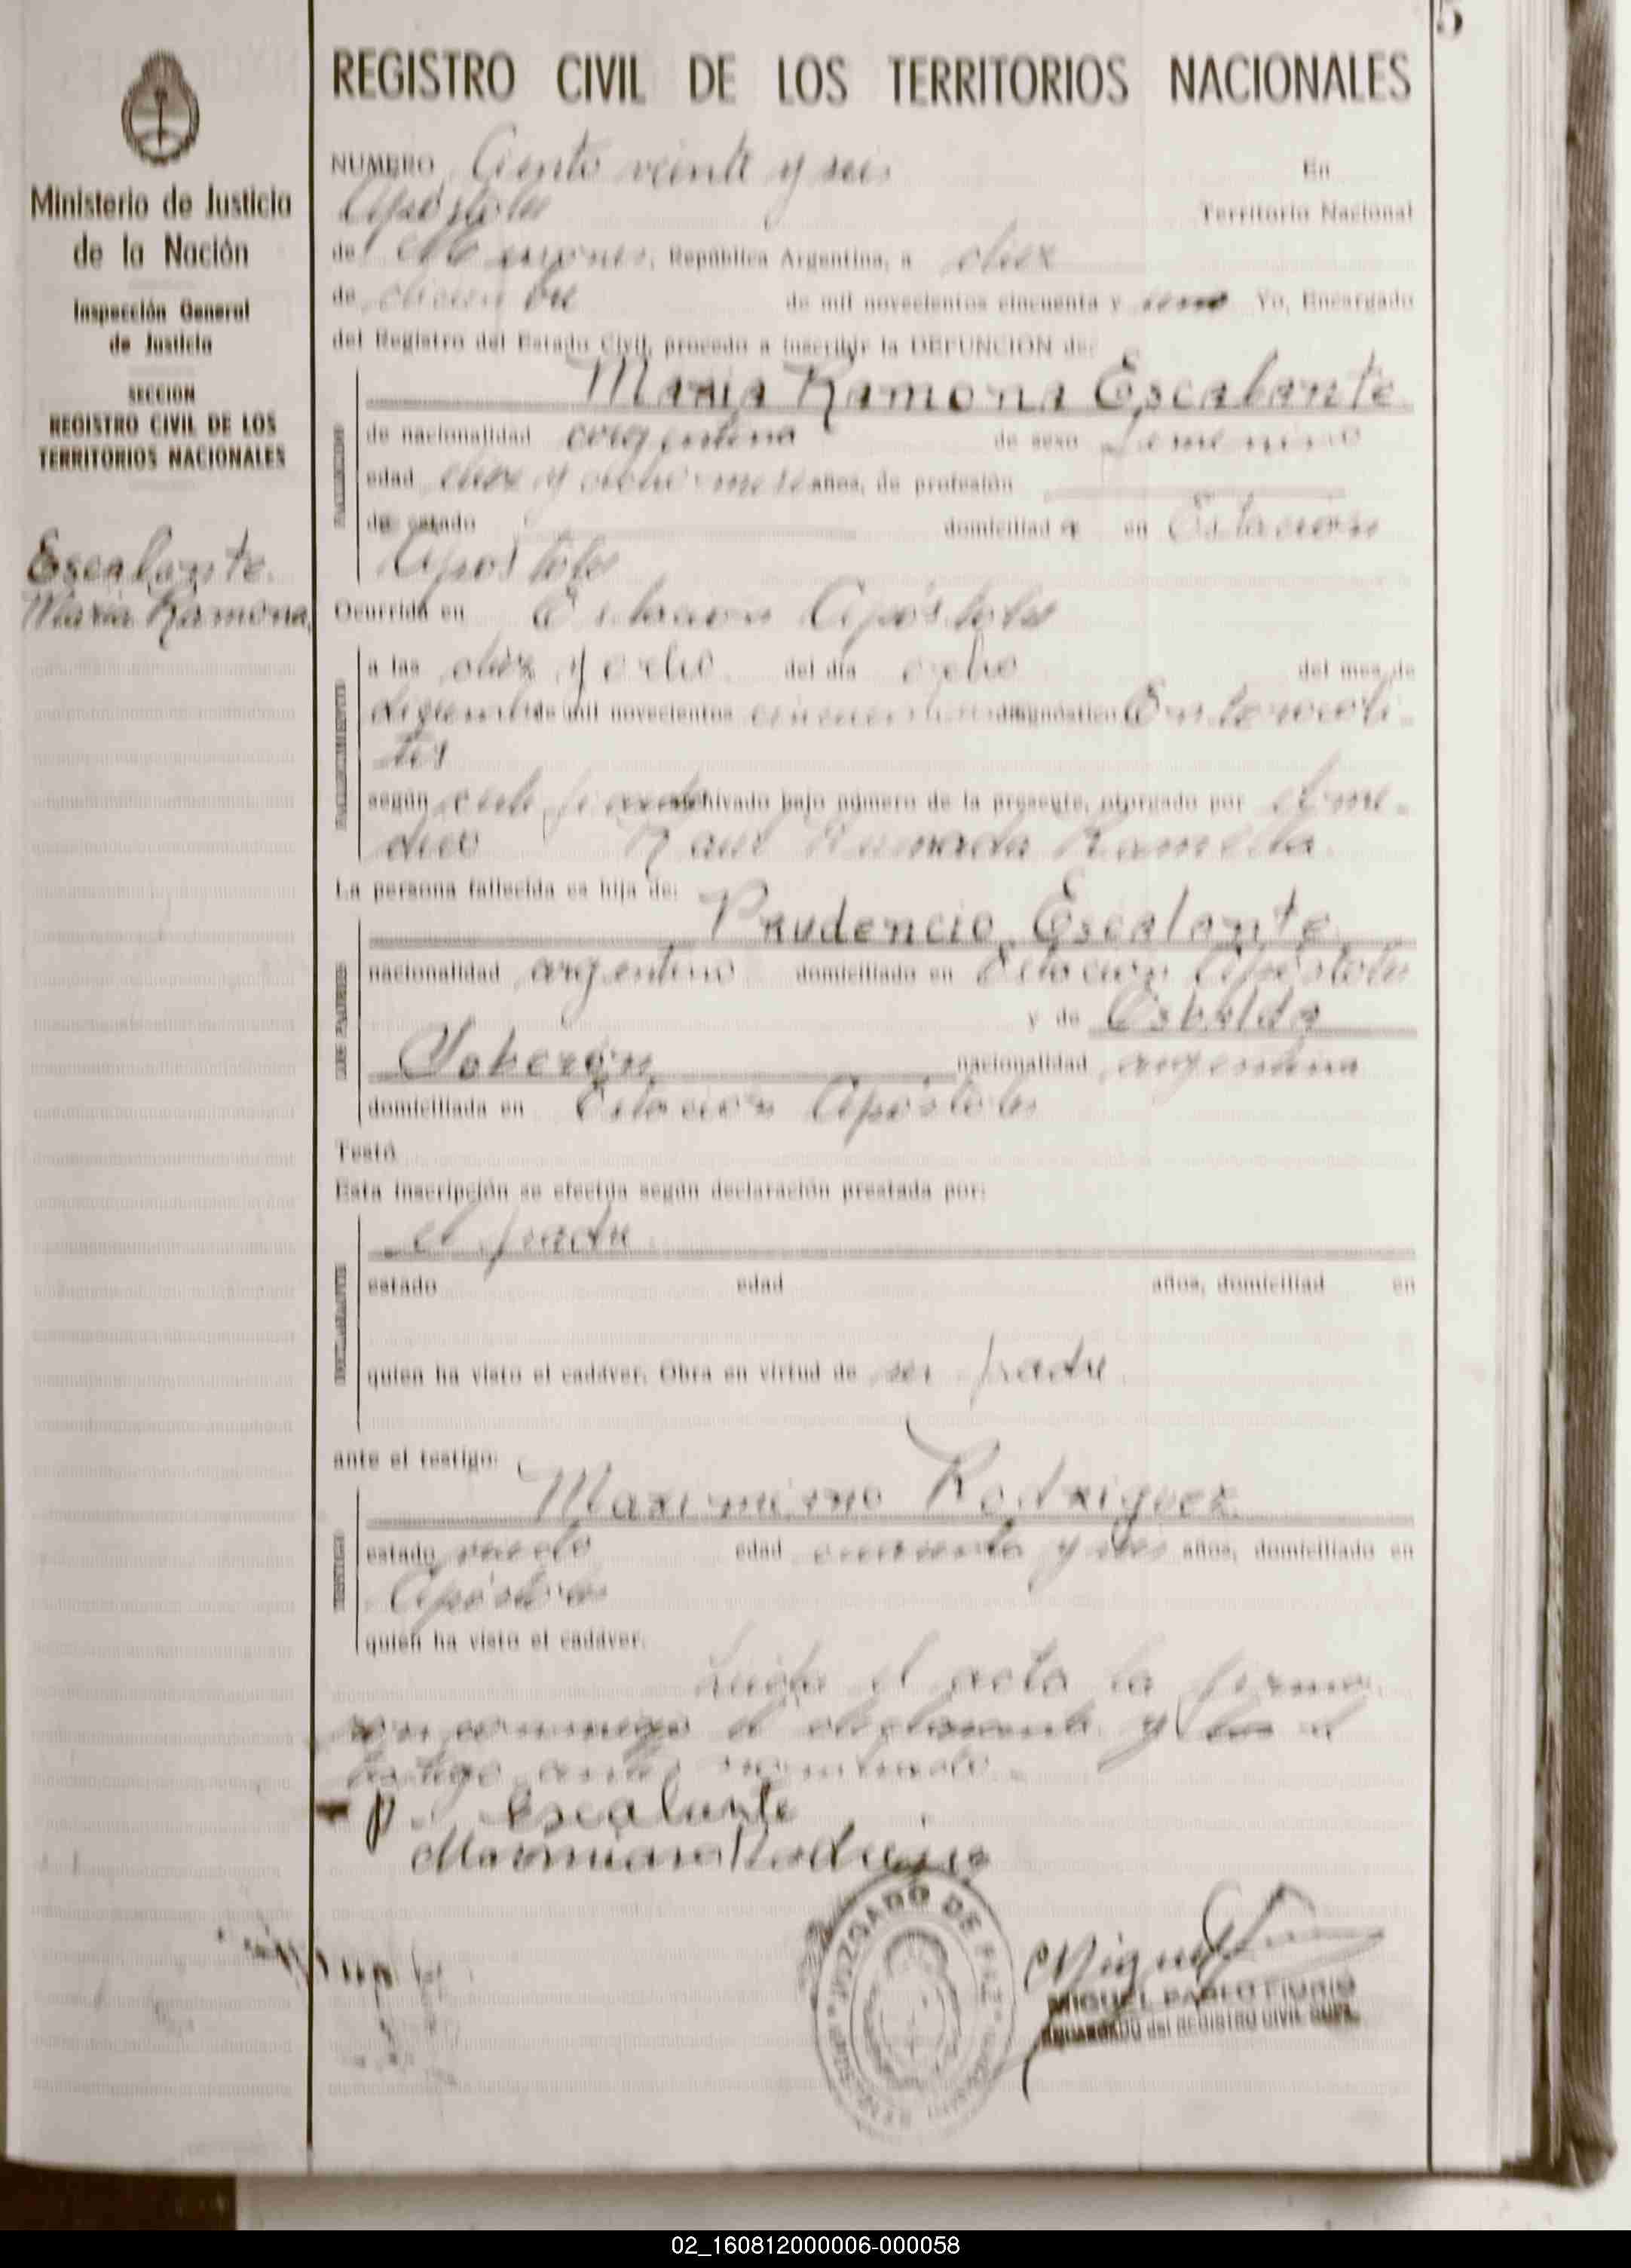 5
Ministerio de Justicia
de la Nación
Inspección General
de Justicia
SECCION
REGISTRO CIVIL DE LOS
TERRITORIOS NACIONALES
Escalante
Maria Ramona
REGISTRO CIVIL DE LOS TERRITORIOS NACIONALES
NUMERO Ciento veinte y seis En
Apóstoles Territorio Nacional
de Misiones, República Argentina, a diez
de diciembre de mil novecientos cincuenta y uno Yo, Encargado
del Registro del Estado Civil, procedo a inscribir la DEFUNCION de:
Maria Ramona Escalante
de nacionalidad argentina de sexo femenino
edad diez y ocho meses años, de profesión
de estado domiciliad a en Estación
Apóstoles
Ocurrido en Estación Apóstoles
FALLECIMIENTO
a las diez y ocho del día ocho del mes de
diciembre de mil novecientos diagnóstico Enterocoli-
tis
según certificado archivado bajo número de la presente, otorgado por el mé-
dico Raul Ramella
La persona fallecida es hija de:
Prudencio Escalante
DE PADRES
nacionalidad argentino domiciliado en Estación Apóstoles
y de Osbalda
Soberón nacionalidad argentina
domiciliada en Estación Apóstoles
Testó
Esta inscripción se efectúa según declaración prestada por:
el padre
DECLARANTE
estado edad años, domiciliad en
quien ha visto el cadáver. Obra en virtud de ser padre
ante el testigo:
Maximiano Rodriguez
TESTIGO
estado edad cuarenta y seis años, domiciliado en
Apóstoles
quien ha visto el cadáver.
Leída el acta la firma
con conmigo el declarante y el
testigo antes nombrado.
P. Escalante
Maximiano Rodriguez
JUZGADO DE PAZ
Miguel
MIGUEL PABLO
ENCARGADO del REGISTRO CIVIL SUPL.
02_160812000006-000058